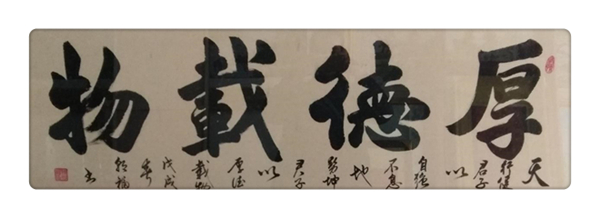 厚德載物
天
行健
君子
以
自強
不息
地
勢坤
君子
以
厚德
載物
戊戌
春
书